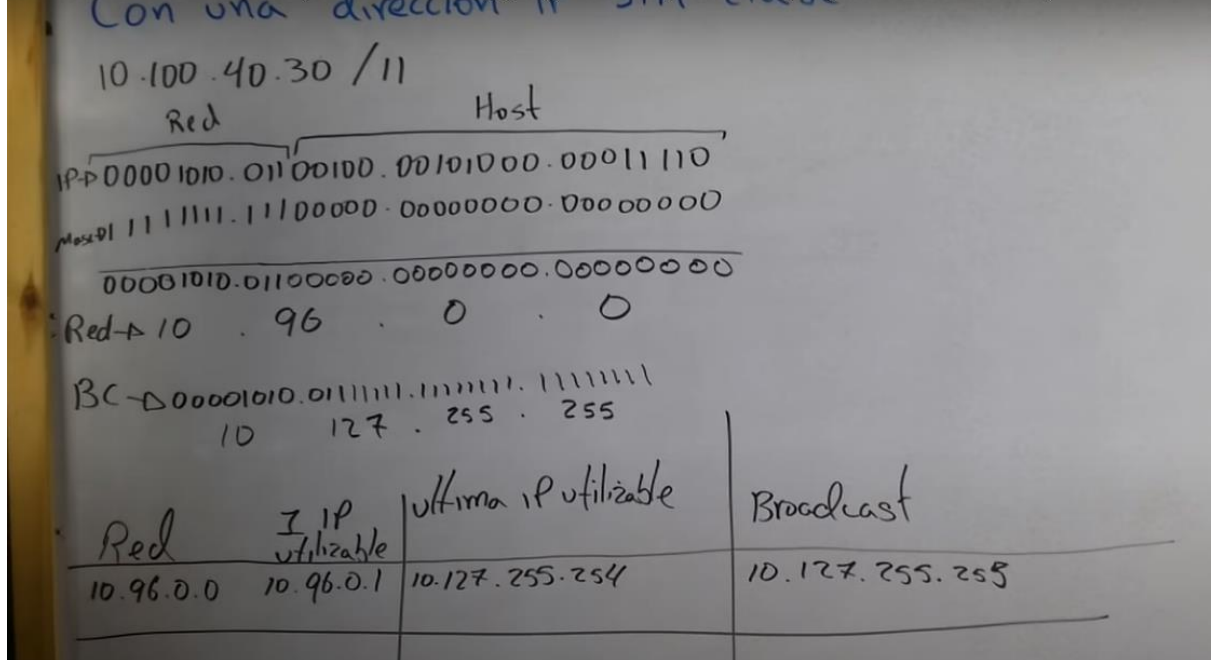 Con una dirección IP sin clase
10.100.40.30 /11
Red Host
IP→00001010.01100100.00101000.00011110
Masc→11111111.11100000.00000000.00000000
00001010.01100000.00000000.00000000
Red→10 . 96 . 0 . 0
BC→00001010.01111111.11111111.11111111
10 127 . 255 . 255
Red I IP utilizable ultima iP utilizable Broadcast
10.96.0.0 10.96.0.1 10.127.255.254 10.127.255.255